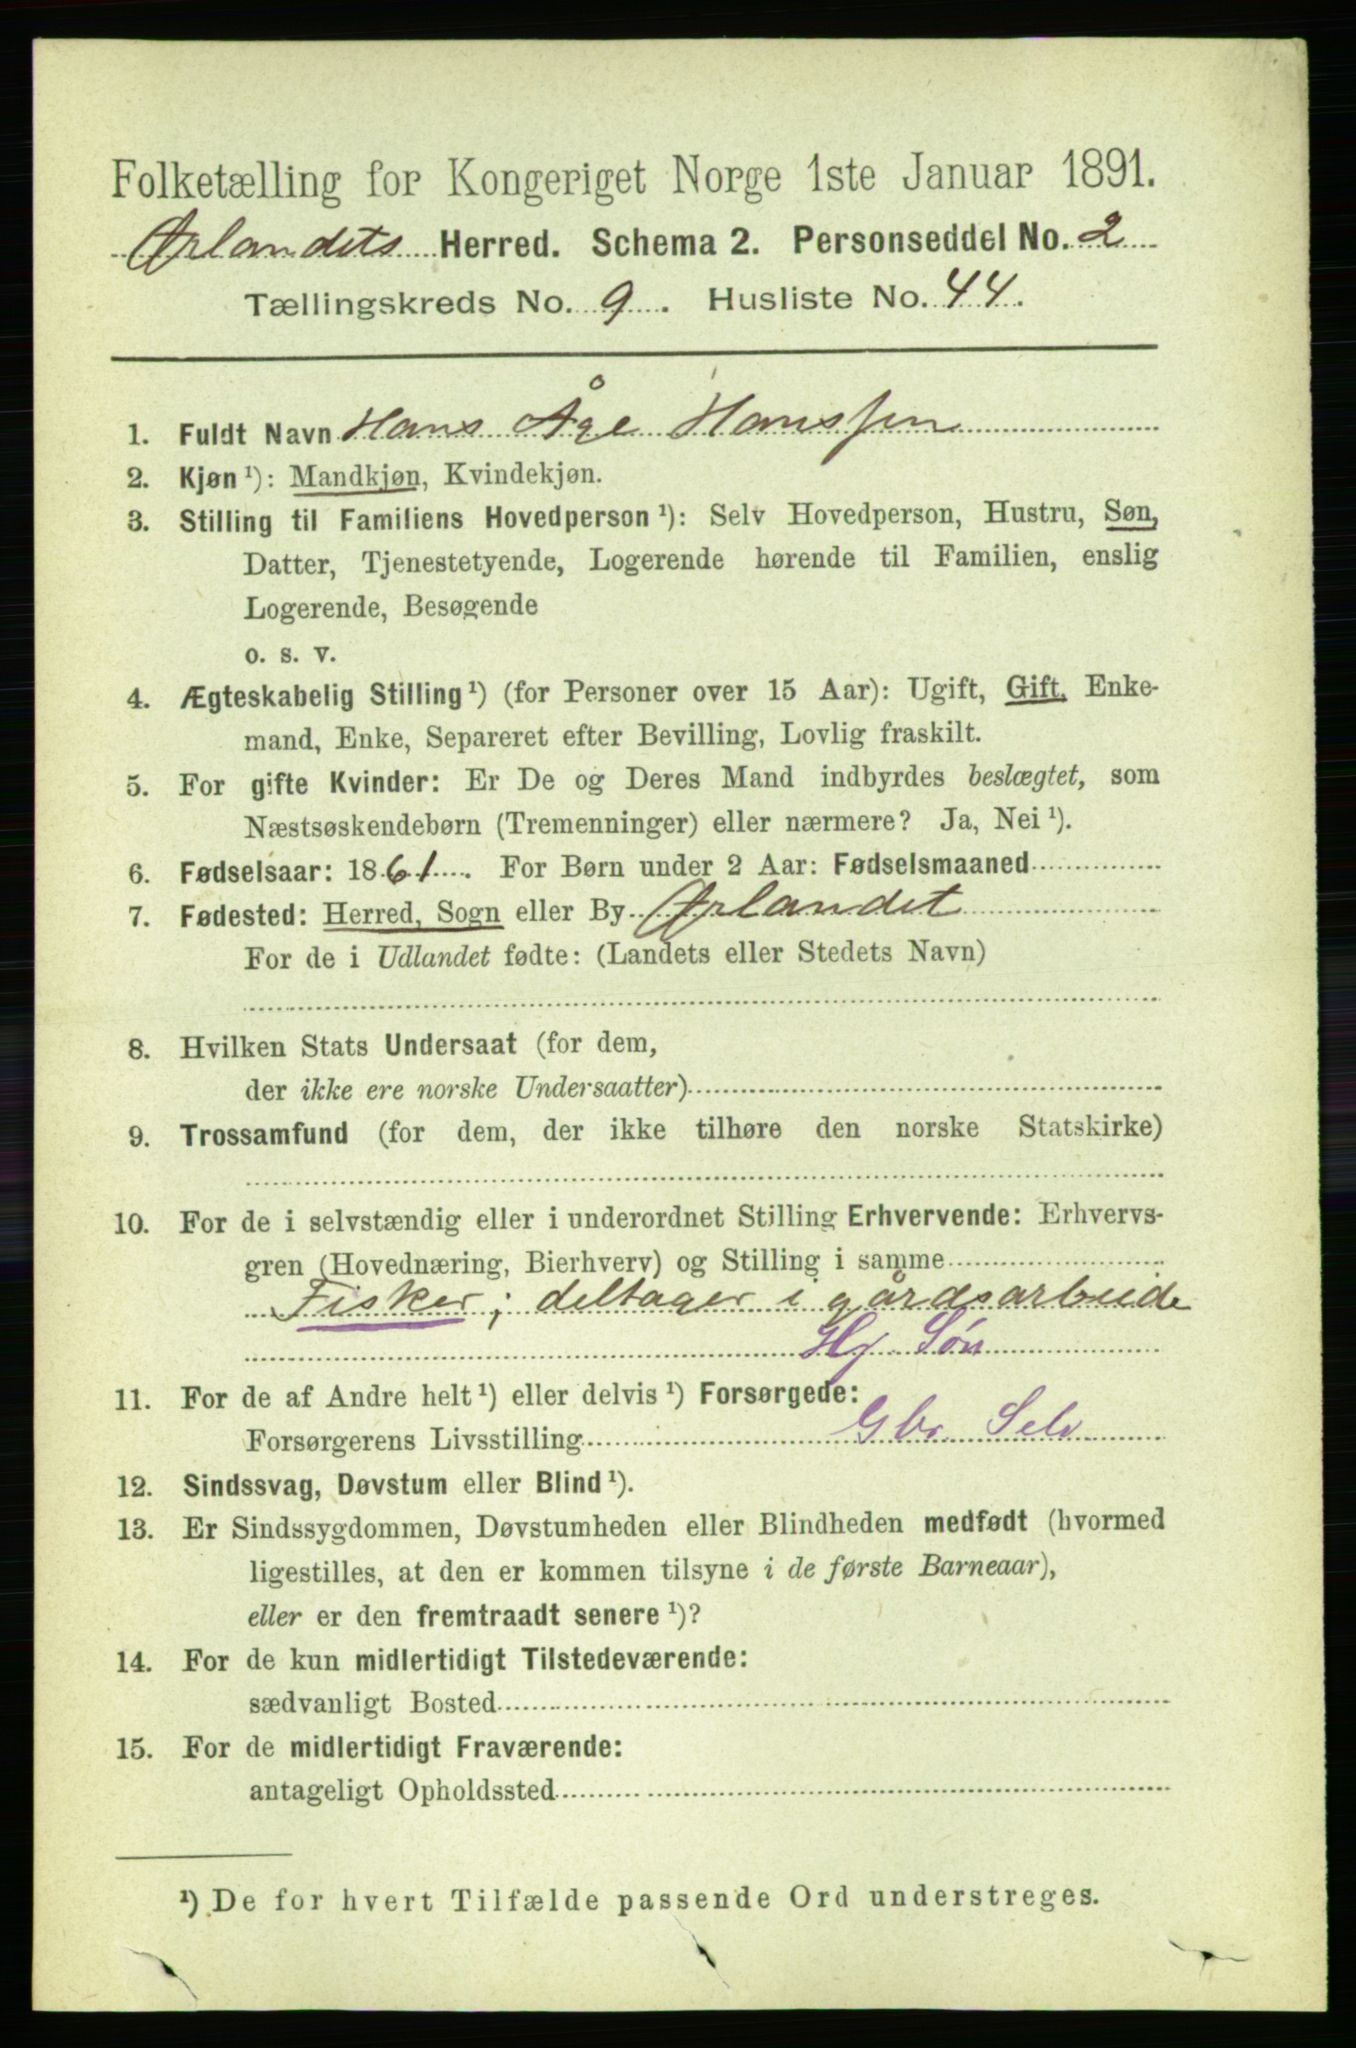 Folketælling for Kongeriget Norge 1ste Januar 1891.
Ørlandets Herred. Schema 2. Personseddel No. 2
Tællingskreds No. 9. Husliste No. 44.
1. Fuldt Navn Hans Åge Hanssen
2. Kjøn ¹): Mandkjøn, Kvindekjøn.
3. Stilling til Familiens Hovedperson ¹): Selv Hovedperson, Hustru, Søn,
Datter, Tjenestetyende, Logerende hørende til Familien, enslig
Logerende, Besøgende
o. s. v.
4. Ægteskabelig Stilling ¹) (for Personer over 15 Aar): Ugift, Gift, Enke-
mand, Enke, Separeret efter Bevilling, Lovlig fraskilt.
5. For gifte Kvinder: Er De og Deres Mand indbyrdes beslægtet, som
Næstsøskendebørn (Tremenninger) eller nærmere? Ja, Nei ¹).
6. Fødselsaar: 1861. For Børn under 2 Aar: Fødselsmaaned
7. Fødested: Herred, Sogn eller By Ørlandet
For de i Udlandet fødte: (Landets eller Stedets Navn)
8. Hvilken Stats Undersaat (for dem,
der ikke ere norske Undersaatter)
9. Trossamfund (for dem, der ikke tilhøre den norske Statskirke)
10. For de i selvstændig eller i underordnet Stilling Erhvervende: Erhvervs-
gren (Hovednæring, Bierhverv) og Stilling i samme
Fisker; deltager i gårdsarbeide
Hj Søn
11. For de af Andre helt ¹) eller delvis ¹) Forsørgede:
Forsørgerens Livsstilling Gbr Selv
12. Sindssvag, Døvstum eller Blind ¹).
13. Er Sindssygdommen, Døvstumheden eller Blindheden medfødt (hvormed
ligestilles, at den er kommen tilsyne i de første Barneaar),
eller er den fremtraadt senere ¹)?
14. For de kun midlertidigt Tilstedeværende:
sædvanligt Bosted
15. For de midlertidigt Fraværende:
antageligt Opholdssted
¹) De for hvert Tilfælde passende Ord understreges.